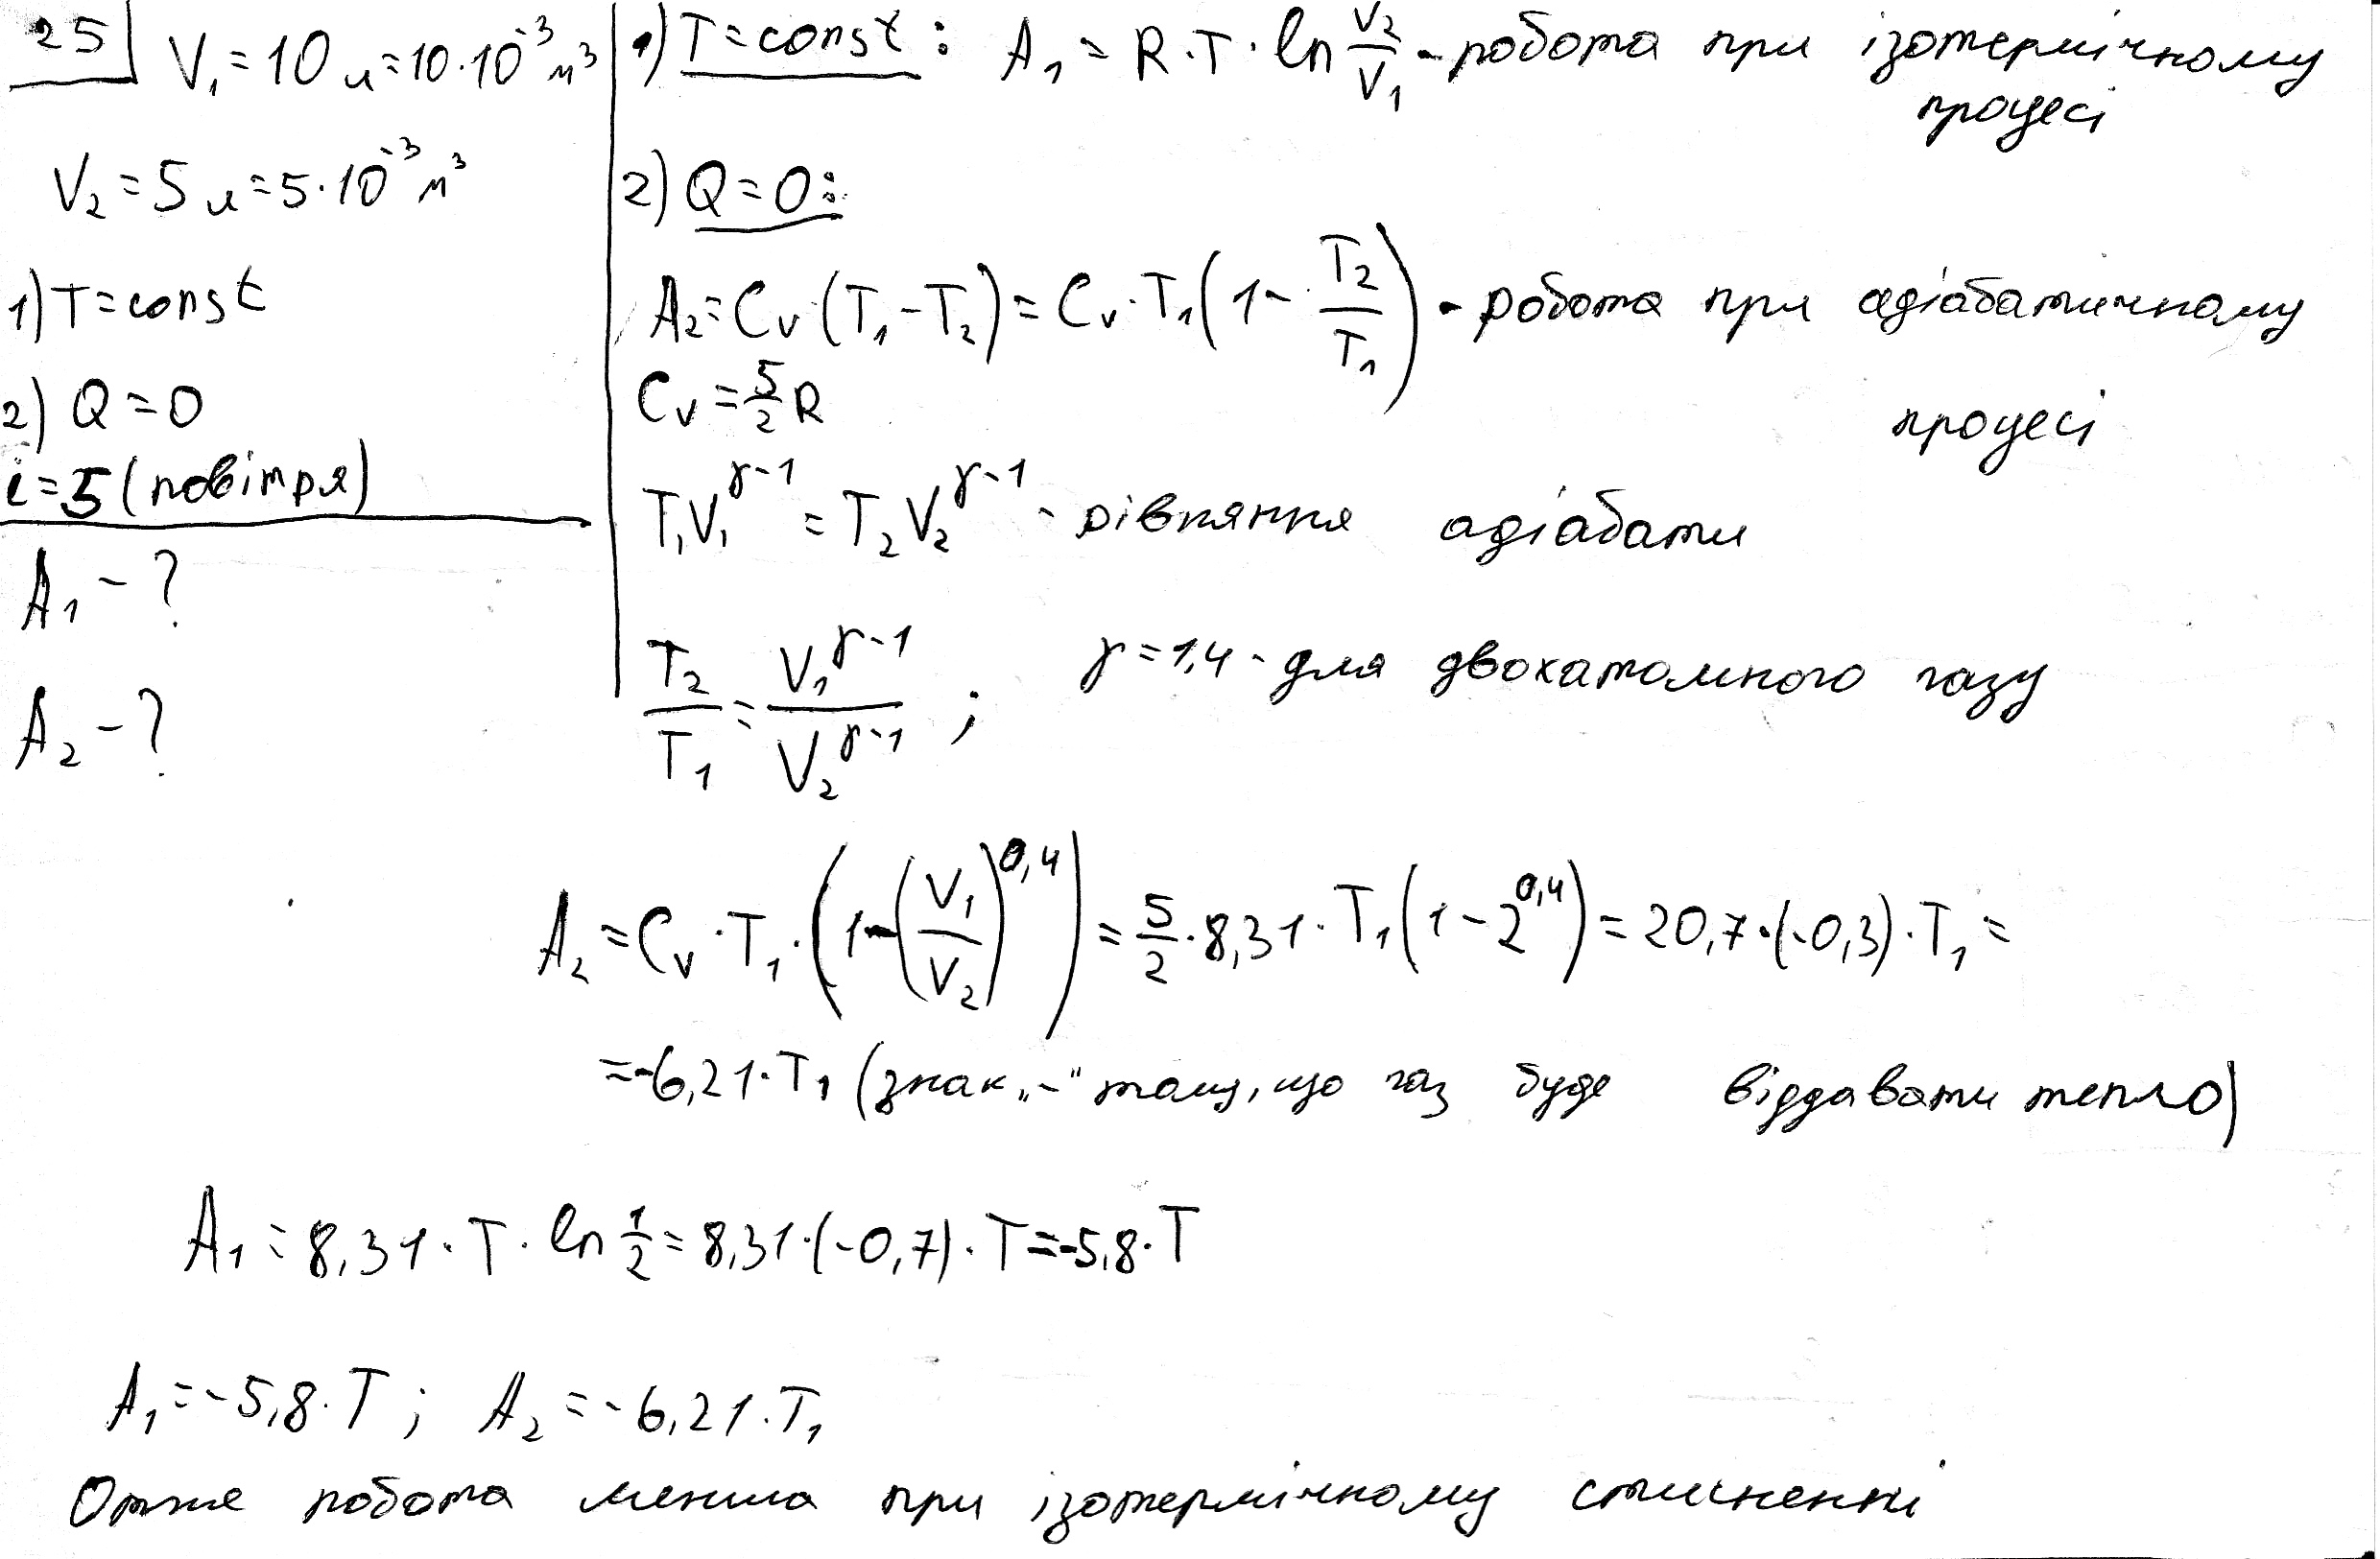 25
V₁ = 10 л = 10·10⁻³ м³
V₂ = 5 л = 5·10⁻³ м³
1) T = const
2) Q = 0
i = 5 (повітря)
A₁ - ?
A₂ - ?
1) T = const : A₁ = R·T·ln V₂/V₁ - робота при ізотермічному
процесі
2) Q = 0:
A₂ = Cᵥ·(T₁ - T₂) = Cᵥ·T₁(1 - T₂/T₁) - робота при адіабатичному
процесі
Cᵥ = 5/2 R
T₁V₁^(γ-1) = T₂V₂^(γ-1) - рівняння адіабати
T₂/T₁ = V₁^(γ-1)/V₂^(γ-1) ; γ = 1,4 - для двохатомного газу
A₂ = Cᵥ·T₁·(1 - (V₁/V₂)^0,4) = 5/2·8,31·T₁(1 - 2^0,4) = 20,7·(-0,3)·T₁ =
= -6,21·T₁ (знак „-" тому, що газ буде віддавати тепло)
A₁ = 8,31·T·ln 1/2 = 8,31·(-0,7)·T = -5,8·T
A₁ = -5,8·T ; A₂ = -6,21·T₁
Отже робота менша при ізотермічному стисненні